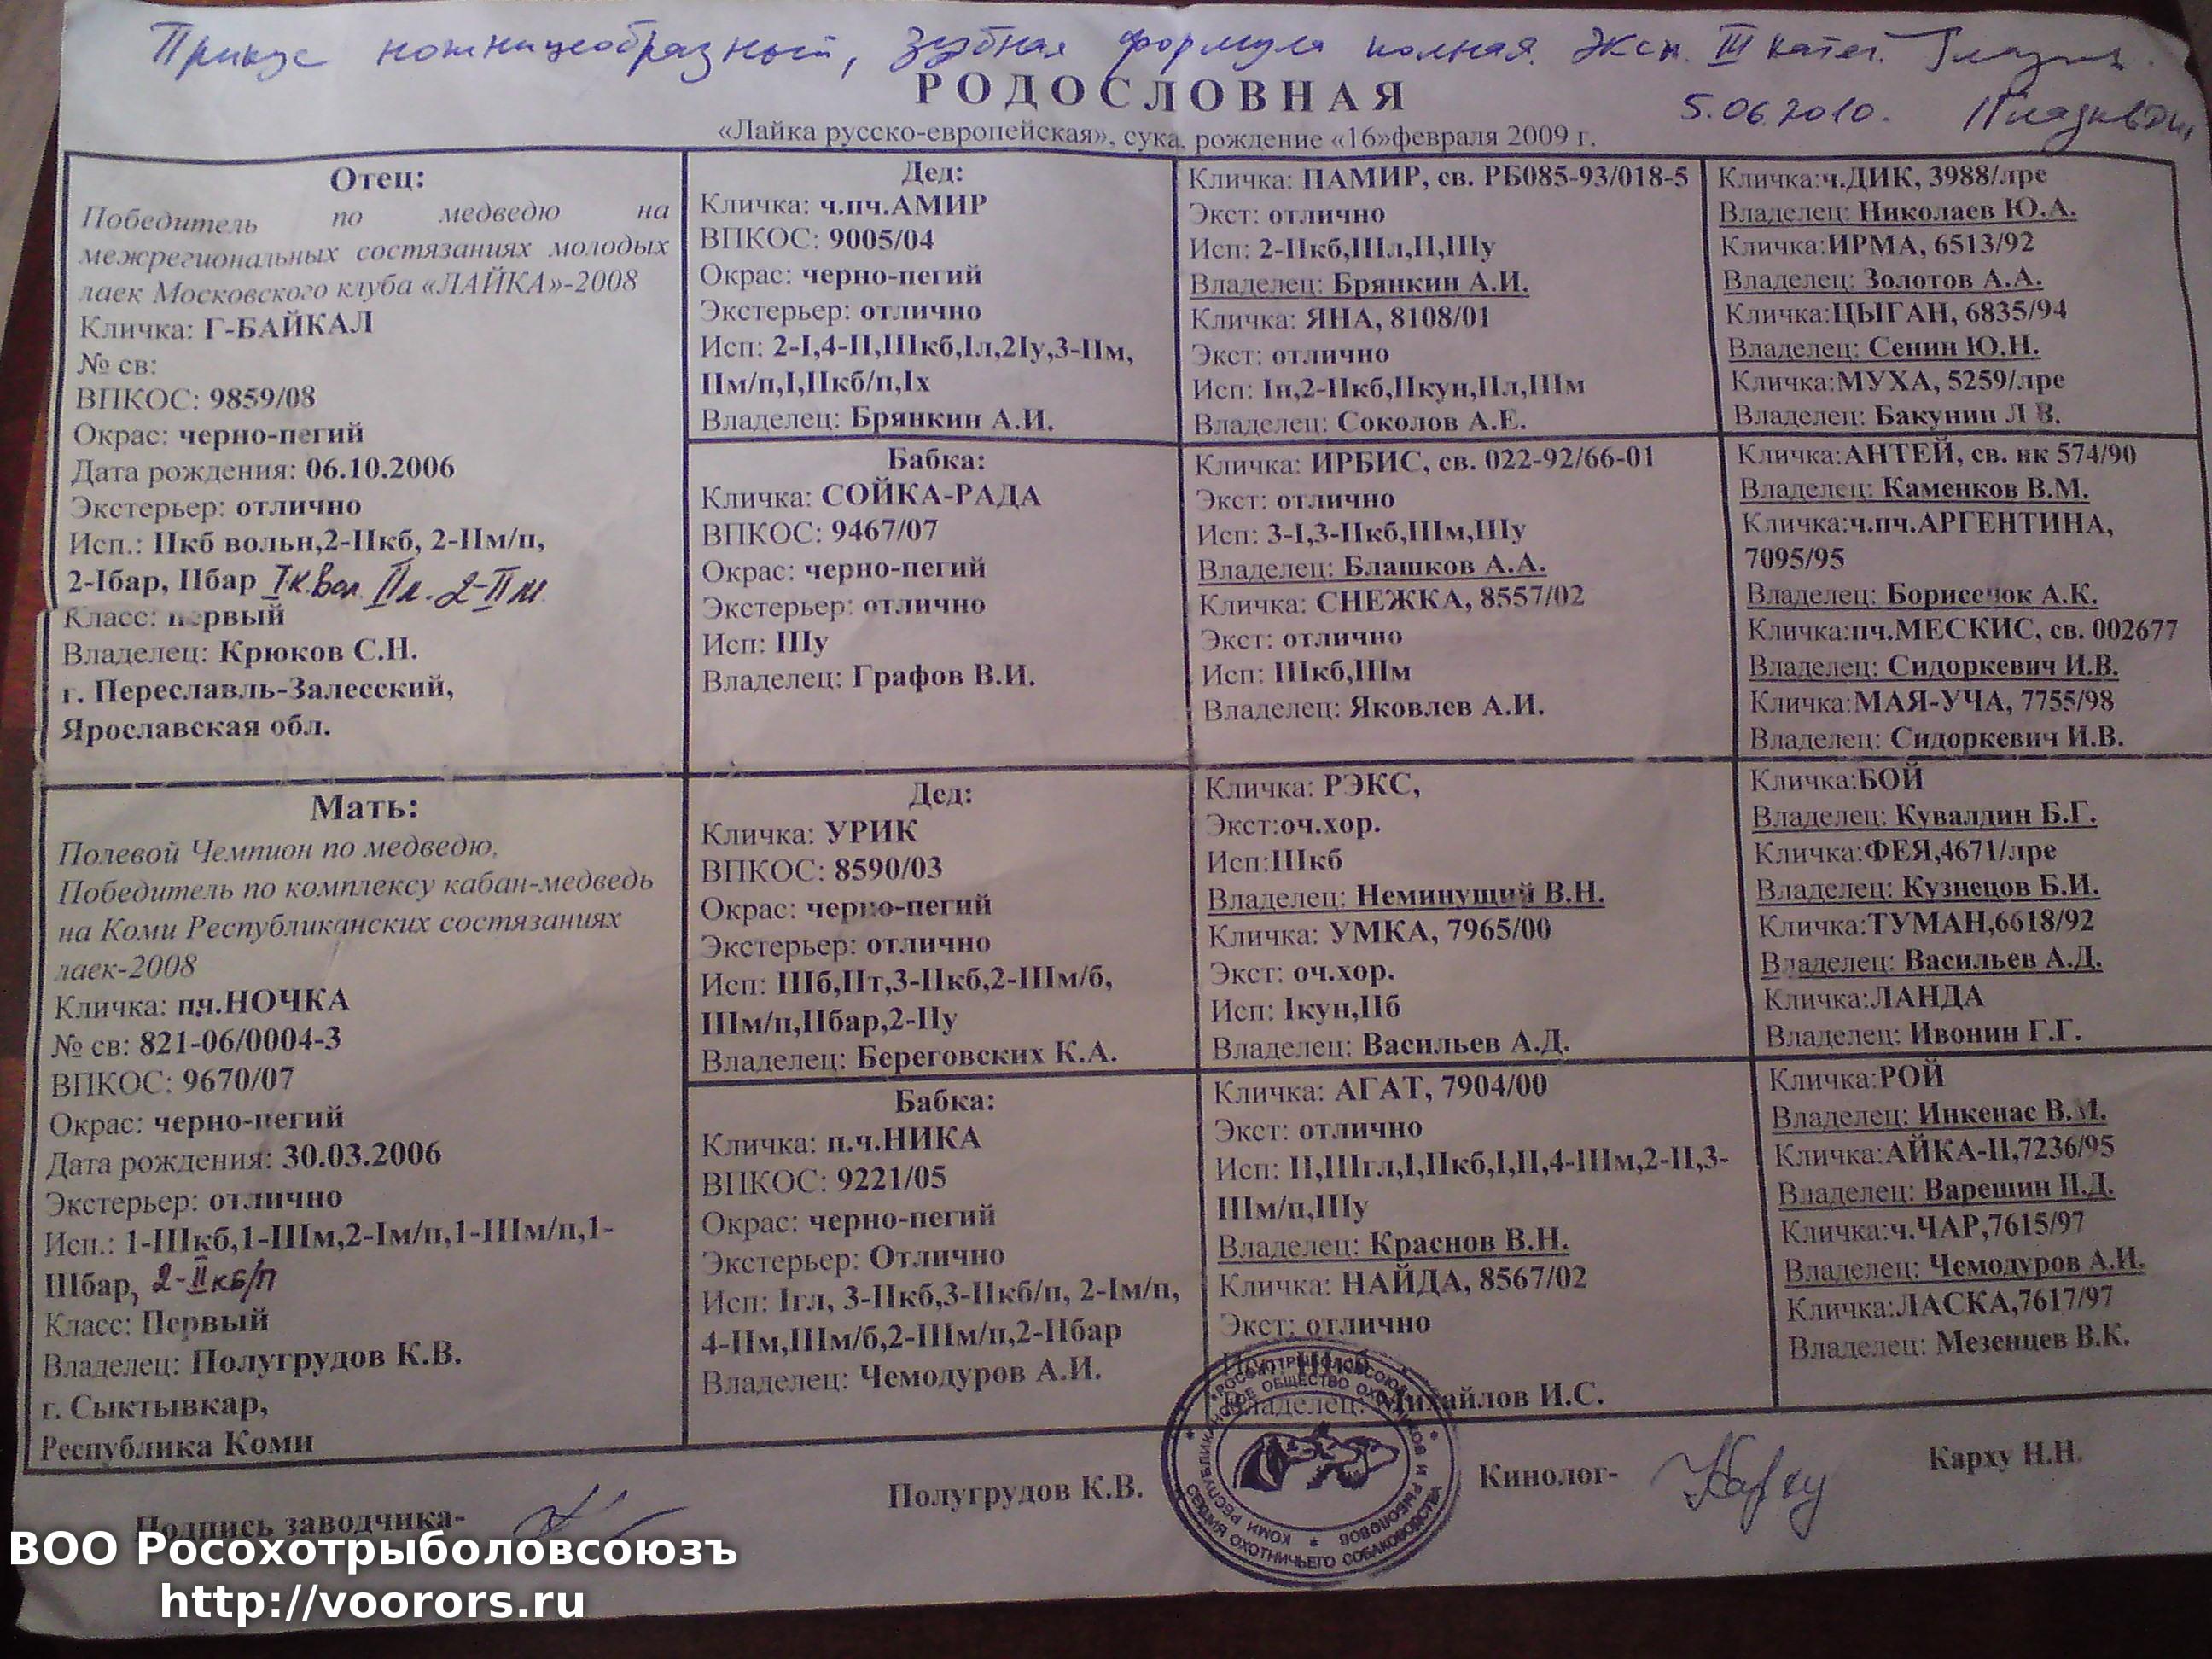 Прикус ножницеобразный, зубная формула полная. Эксп. III катег.
РОДОСЛОВНАЯ
5.06.2010.
«Лайка русско-европейская», сука, рождение «16»февраля 2009 г.
Отец:
Победитель по медведю на
межрегиональных состязаниях молодых
лаек Московского клуба «ЛАЙКА»-2008
Кличка: Г-БАЙКАЛ
№ св:
ВПКОС: 9859/08
Окрас: черно-пегий
Дата рождения: 06.10.2006
Экстерьер: отлично
Исп.: IIкб вольн,2-IIкб, 2-IIм/п,
2-Iбар, IIбар Iк.вол. IIл. 2-IIм
Класс: первый
Владелец: Крюков С.Н.
г. Переславль-Залесский,
Ярославская обл.
Дед:
Кличка: ч.пч.АМИР
ВПКОС: 9005/04
Окрас: черно-пегий
Экстерьер: отлично
Исп: 2-I,4-II,IIIкб,Iл,2Iу,3-IIм,
IIм/п,I,IIкб/п,Iх
Владелец: Брянкин А.И.
Бабка:
Кличка: СОЙКА-РАДА
ВПКОС: 9467/07
Окрас: черно-пегий
Экстерьер: отлично
Исп: IIIу
Владелец: Графов В.И.
Кличка: ПАМИР, св. РБ085-93/018-5
Экст: отлично
Исп: 2-IIкб,IIIл,II,IIIу
Владелец: Брянкин А.И.
Кличка: ЯНА, 8108/01
Экст: отлично
Исп: Iн,2-IIкб,IIкун,IIл,IIIм
Владелец: Соколов А.Е.
Кличка: ИРБИС, св. 022-92/66-01
Экст: отлично
Исп: 3-I,3-IIкб,IIIм,IIIу
Владелец: Блашков А.А.
Кличка: СНЕЖКА, 8557/02
Экст: отлично
Исп: IIIкб,IIIм
Владелец: Яковлев А.И.
Кличка:ч.ДИК, 3988/лре
Владелец: Николаев Ю.А.
Кличка:ИРМА, 6513/92
Владелец: Золотов А.А.
Кличка:ЦЫГАН, 6835/94
Владелец: Сенин Ю.Н.
Кличка:МУХА, 5259/лре
Владелец: Бакунин Л.В.
Кличка:АНТЕЙ, св. нк 574/90
Владелец: Каменков В.М.
Кличка:ч.пч.АРГЕНТИНА,
7095/95
Владелец: Борисенок А.К.
Кличка:пч.МЕСКИС, св. 002677
Владелец: Сидоркевич И.В.
Кличка:МАЯ-УЧА, 7755/98
Владелец: Сидоркевич И.В.
Мать:
Полевой Чемпион по медведю,
Победитель по комплексу кабан-медведь
на Коми Республиканских состязаниях
лаек-2008
Кличка: пч.НОЧКА
№ св: 821-06/0004-3
ВПКОС: 9670/07
Окрас: черно-пегий
Дата рождения: 30.03.2006
Экстерьер: отлично
Исп.: 1-IIIкб,1-IIIм,2-Iм/п,1-IIIм/п,1-
IIIбар, 2-IIкб/п
Класс: Первый
Владелец: Полугрудов К.В.
г. Сыктывкар,
Республика Коми
Дед:
Кличка: УРИК
ВПКОС: 8590/03
Окрас: черно-пегий
Экстерьер: отлично
Исп: IIIб,IIт,3-IIкб,2-IIIм/б,
IIIм/п,IIбар,2-IIу
Владелец: Береговских К.А.
Бабка:
Кличка: п.ч.НИКА
ВПКОС: 9221/05
Окрас: черно-пегий
Экстерьер: Отлично
Исп: Iгл, 3-IIкб,3-IIкб/п, 2-Iм/п,
4-IIм,IIIм/б,2-IIIм/п,2-IIбар
Владелец: Чемодуров А.И.
Кличка: РЭКС,
Экст:оч.хор.
Исп:IIIкб
Владелец: Неминущий В.Н.
Кличка: УМКА, 7965/00
Экст: оч.хор.
Исп: Iкун,IIб
Владелец: Васильев А.Д.
Кличка: АГАТ, 7904/00
Экст: отлично
Исп: II,IIIгл,I,IIкб,I,II,4-IIIм,2-II,3-
IIIм/п,IIIу
Владелец: Краснов В.Н.
Кличка: НАЙДА, 8567/02
Экст: отлично
Владелец: Михайлов И.С.
Кличка:БОЙ
Владелец: Кувалдин Б.Г.
Кличка:ФЕЯ,4671/лре
Владелец: Кузнецов Б.И.
Кличка:ТУМАН,6618/92
Владелец: Васильев А.Д.
Кличка:ЛАНДА
Владелец: Ивонин Г.Г.
Кличка:РОЙ
Владелец: Инкенас В.М.
Кличка:АЙКА-II,7236/95
Владелец: Варешин П.Д.
Кличка:ч.ЧАР,7615/97
Владелец: Чемодуров А.И.
Кличка:ЛАСКА,7617/97
Владелец: Мезенцев В.К.
Подпись заводчика-
Полугрудов К.В.
РОСОХОТРЫБОЛОВСОЮЗ
КОМИ РЕСПУБЛИКАНСКОЕ ОБЩЕСТВО ОХОТНИКОВ И РЫБОЛОВОВ
СЕКЦИЯ ОХОТНИЧЬЕГО СОБАКОВОДСТВА
Кинолог-
Карху
Карху Н.Н.
ВОО Росохотрыболовсоюзъ
http://voorors.ru